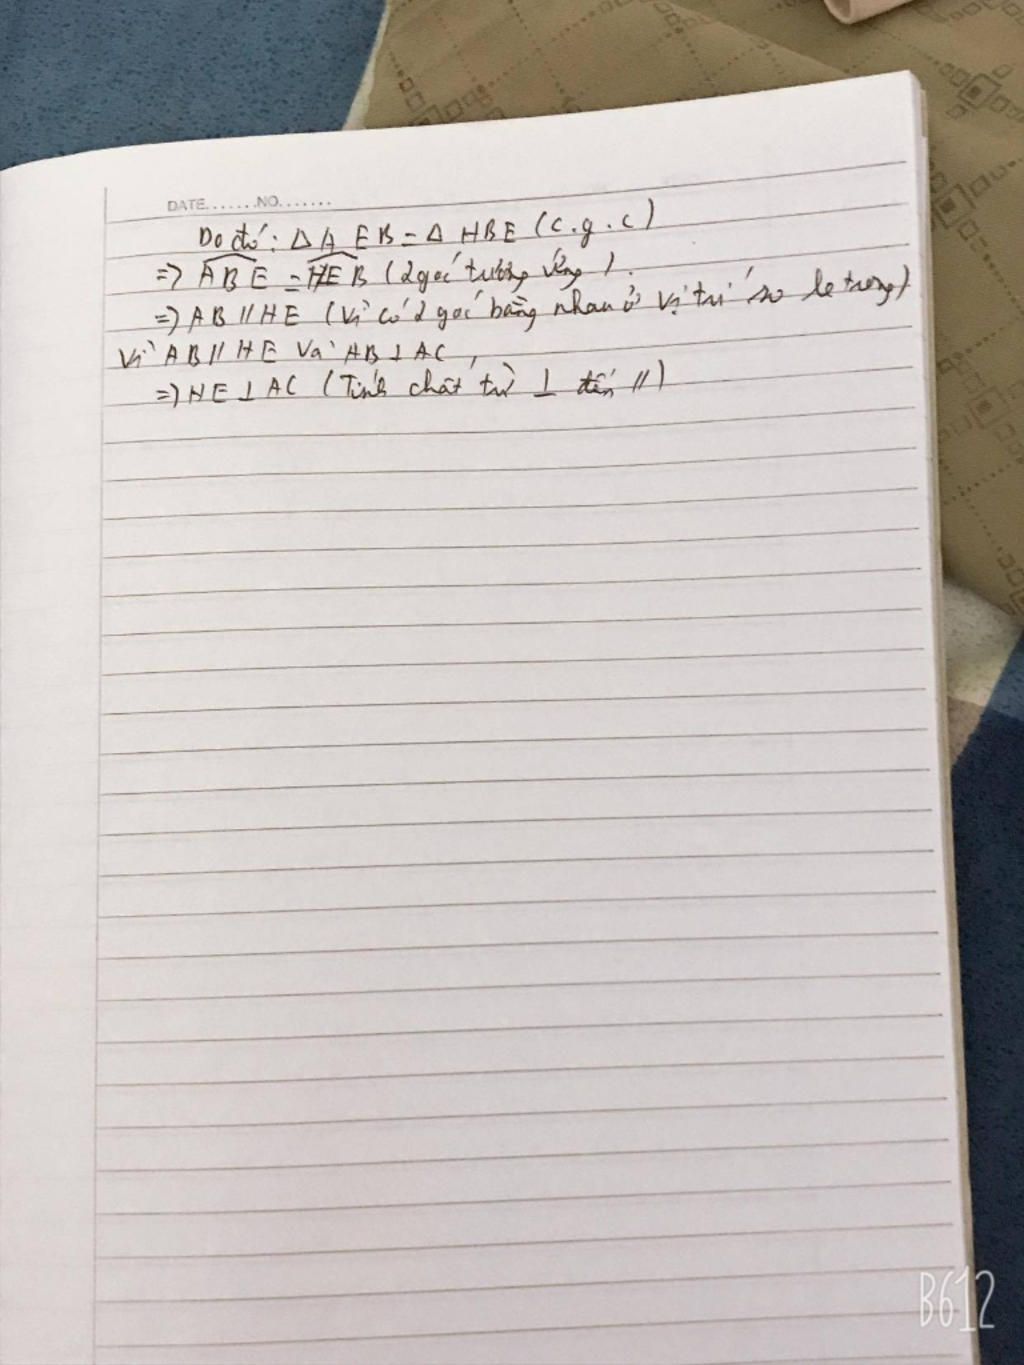 DATE.......NO.......
Do đó: Δ AEB = Δ HBE (c.g.c)
=> ABE = HEB (2 góc tương ứng).
=> AB // HE (vì có 2 góc bằng nhau ở vị trí so le trong)
Vì AB // HE và AB ⊥ AC,
=> HE ⊥ AC (Tính chất từ ⊥ đến //)
B612